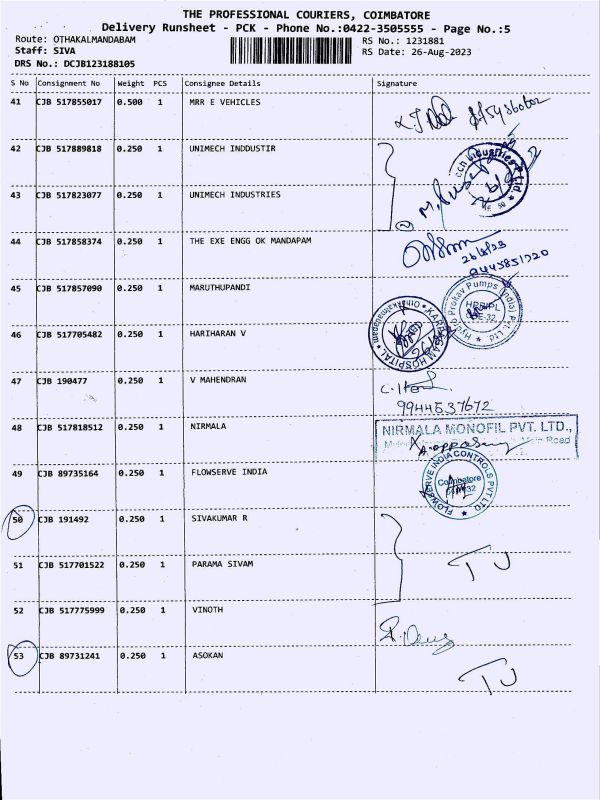 THE PROFESSIONAL COURIERS, COIMBATORE
Delivery Runsheet - PCK - Phone No.:0422-3505555 - Page No.:5
Route: OTHAKALMANDABAM
Staff: SIVA
DRS No.: DCJB123188105
RS No.: 1231881
RS Date: 26-Aug-2023
S No Consignment No Weight PCS Consignee Details Signature
41 CJB 517855017 0.500 1 MRR E VEHICLES
42 CJB 517889818 0.250 1 UNIMECH INDDUSTIR
43 CJB 517823077 0.250 1 UNIMECH INDUSTRIES
44 CJB 517858374 0.250 1 THE EXE ENGG OK MANDAPAM
26/8/23
9445851920
45 CJB 517857090 1 0.250 MARUTHUPANDI
Hydro Prokav Pumps (India) Pvt. Ltd
46 CJB 517705482 0.250 1 HARIHARAN V
HOSPITAL
47 CJB 190477 0.250 1 V MAHENDRAN
9944537672
48 CJB 517818512 0.250 1 NIRMALA
NIRMALA MONOFIL PVT. LTD.,
Main Road
49 CJB 89735164 0.250 1 FLOWSERVE INDIA
FLOWSERVE INDIA CONTROLS PVT LTD
Coimbatore
50 CJB 191492 0.250 1 SIVAKUMAR R
51 CJB 517701522 0.250 1 PARAMA SIVAM
TJ
52 CJB 517775999 0.250 1 VINOTH
53 CJB 89731241 0.250 1 ASOKAN
TJ